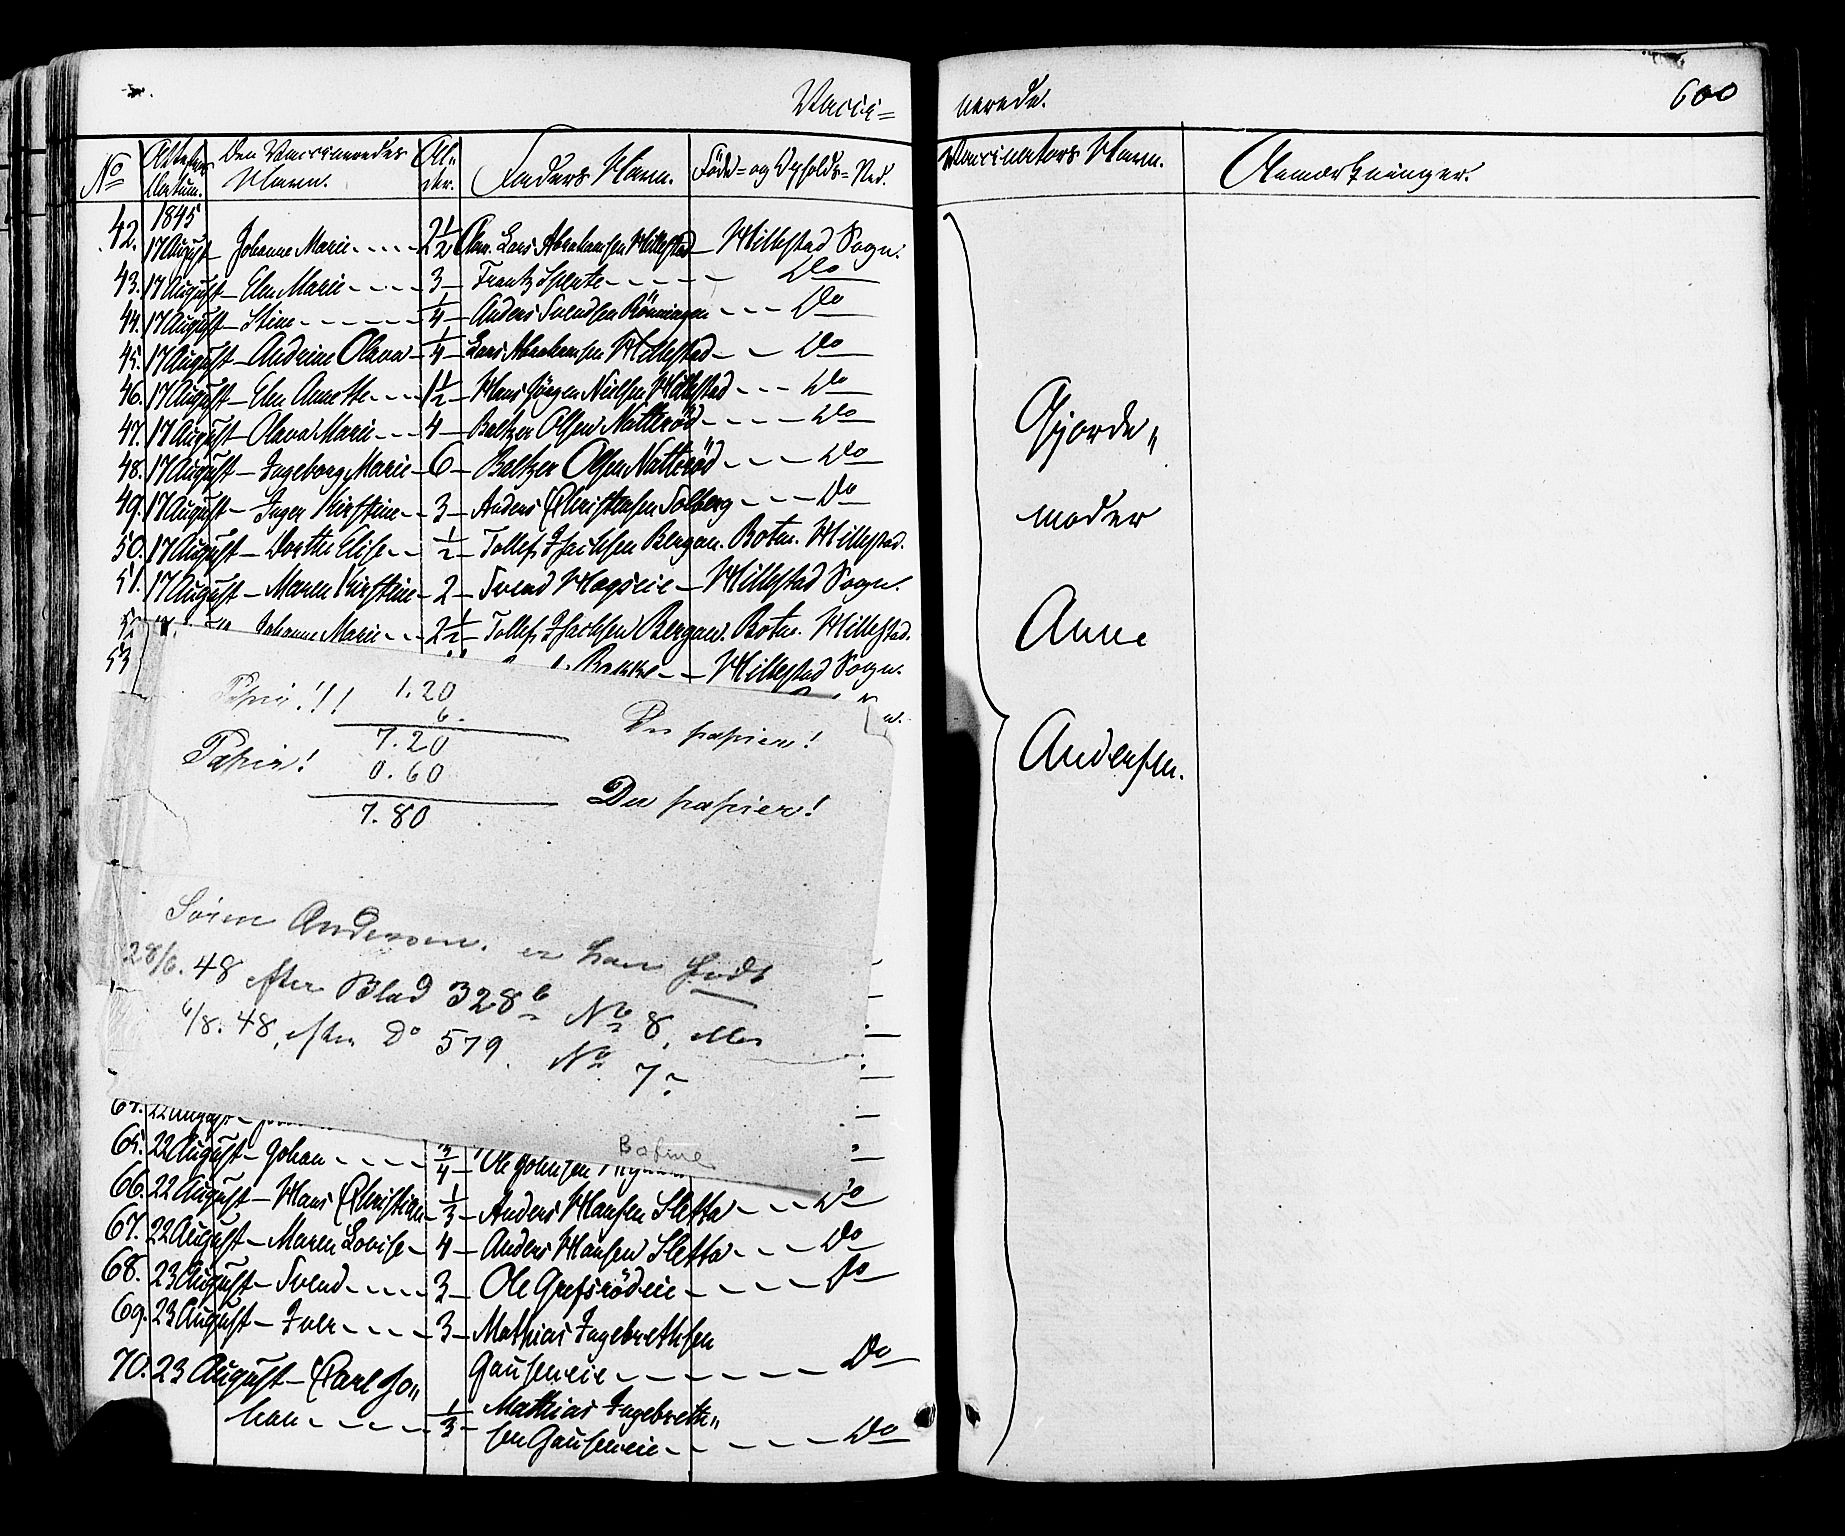 Vacci= nerede. 600
No Attestens Datum. Den Vaccineredes Navn. Al„ der. Faders Navn. Føde= og Opholds= Sted. Vaccinators Navn. Anmærkninger.
1845
42. 17 August Johanne Marie 2 1/2 Lars Abrahamsen Hillestad Hillestad Sogn.
43. 17 August Elen Marie 3 Frantz Do
44. 17 August Stine 1/4 Anders Svendsen Rönningen Do
45. 17 August Andrine Olava 1/4 Lars Abrahamsen Hillestad Do
46. 17 August Elen Annette 1 1/2 Hans Jörgen Nielsen Hillestad Do
47. 17 August Olava Marie 4 Baltzer Olsen Nattröd Do
48. 17 August Ingeborg Marie 6 Baltzer Olsen Nattröd Do
49. 17 August Inger Kirstine 3 Anders Christensen Solberg Do
50. 17 August Dorthe Elise 1/2 Tollef Isachsen Bergan. Botne. Hillestad.
51. 17 August Maren Kirstine 2 Svend Hagseie Hillestad Sogn.
Johanne Marie 2 1/2 Tollef Isachsen Bergan. Botne. Hillestad.
53 Hillestad Sogn.
Papir!!! 1.20
6.
7.20 Du papier!
Papier! 0.60
7.80 Du papier!
Sören Andersen. er han født
28/6. 48 efter Blad 328b No 8, eller
6/8. 48, efter Do 579. No 7?
Botne
22 August
65. 22 August Johan 3/4 Ole Johnsen
66. 22 August Hans Christian 1/3 Anders Hansen Sletta Do
67. 22 August Maren Lovise 4 Anders Hansen Sletta Do
68. 23 August Svend 3 Ole Grefsrödeie Do
69. 23 August Iver 3 Mathias Ingebrethsen
Gauseneie Do
70. 23 August Carl Jo„
han 1/3 Mathias Ingebreth„
sen Gauseneie Do
Gjorde„
moder
Anne
Andersen.